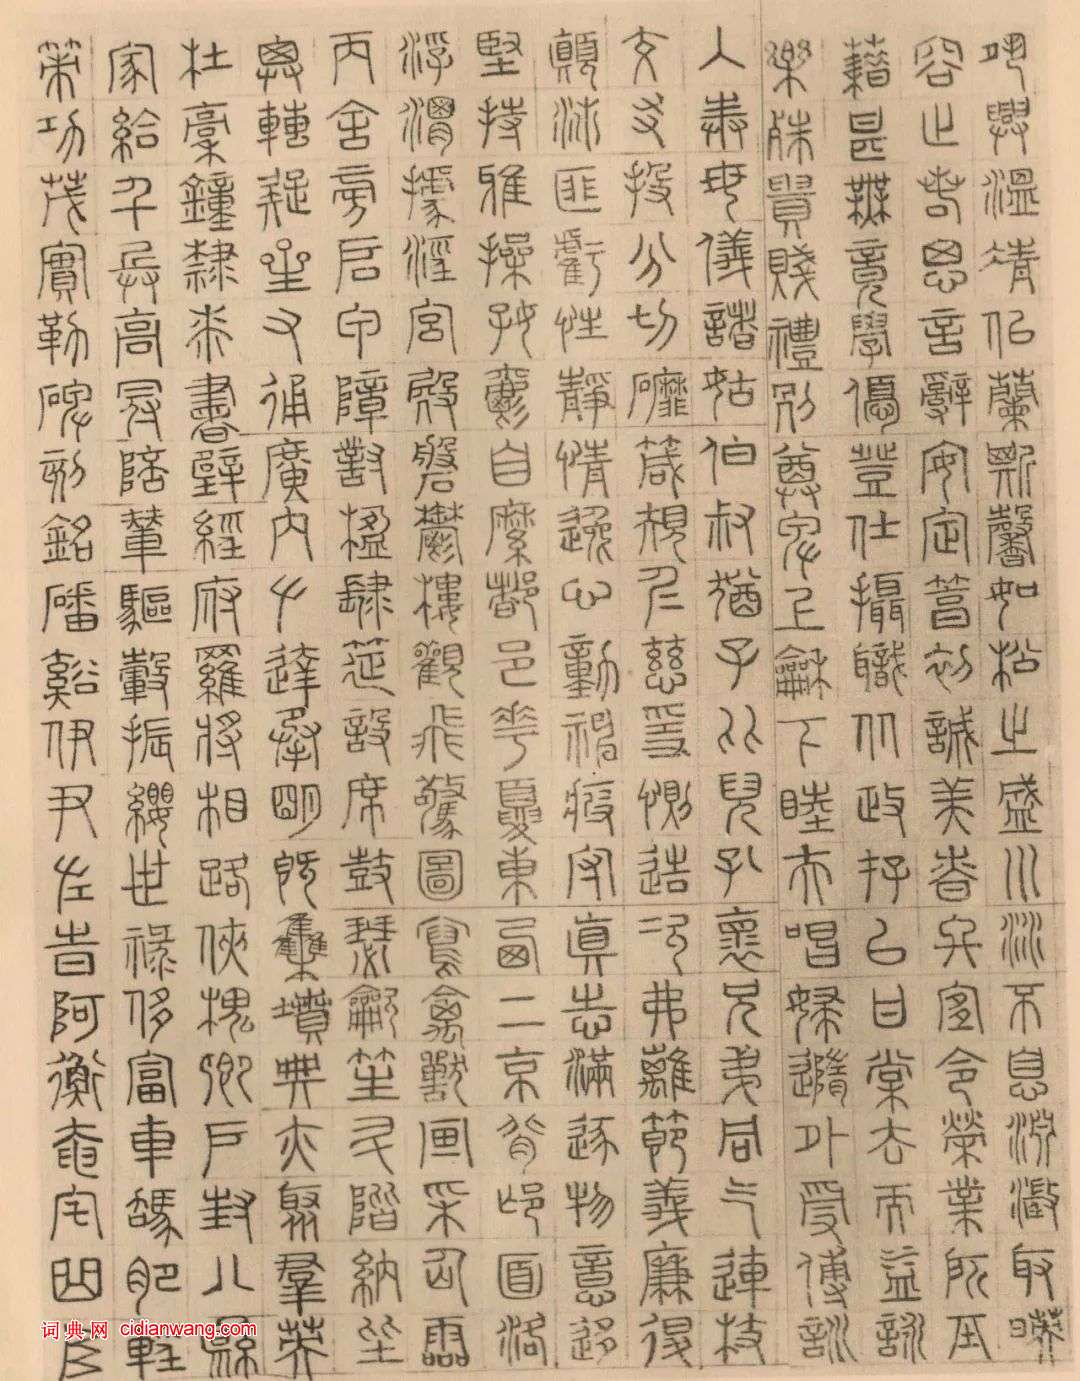 夙興溫凊似蘭斯馨如松之盛川流不息淵澂取暎
容止若思言辭安定篤初誠美慎終宜令榮業所基
籍甚無竟學優登仕攝職從政存以甘棠去而益詠
樂殊貴賤禮別尊卑上和下睦夫唱婦隨外受傅訓
入奉母儀諸姑伯叔猶子比兒孔懷兄弟同气連枝
交友投分切磨箴規仁慈隱惻造次弗離節義廉退
顛沛匪虧性靜情逸心動神疲守真志滿逐物意移
堅持雅操好爵自縻都邑華夏東西二京背邙面洛
浮渭據涇宮殿盤鬱樓觀飛驚圖寫禽獸畫采仙靈
丙舍傍啟甲帳對楹肆筵設席鼓瑟龡笙升階納陛
弁轉疑星右通廣內左達承明既集墳典亦聚羣英
杜稾鐘隸漆書壁經府羅將相路俠槐卿戶封八縣
家給千兵高冠陪輦驅轂振纓世祿侈富車駕肥輕
策功茂實勒碑刻銘磻谿伊尹佐時阿衡奄宅曲阜
词典网 cidianwang.com